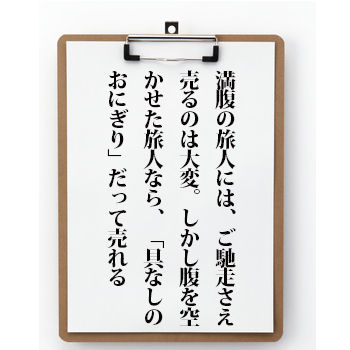 満腹の旅人には、ご馳走さえ
売るのは大変。しかし腹を空
かせた旅人なら、「具なしの
おにぎり」だって売れる